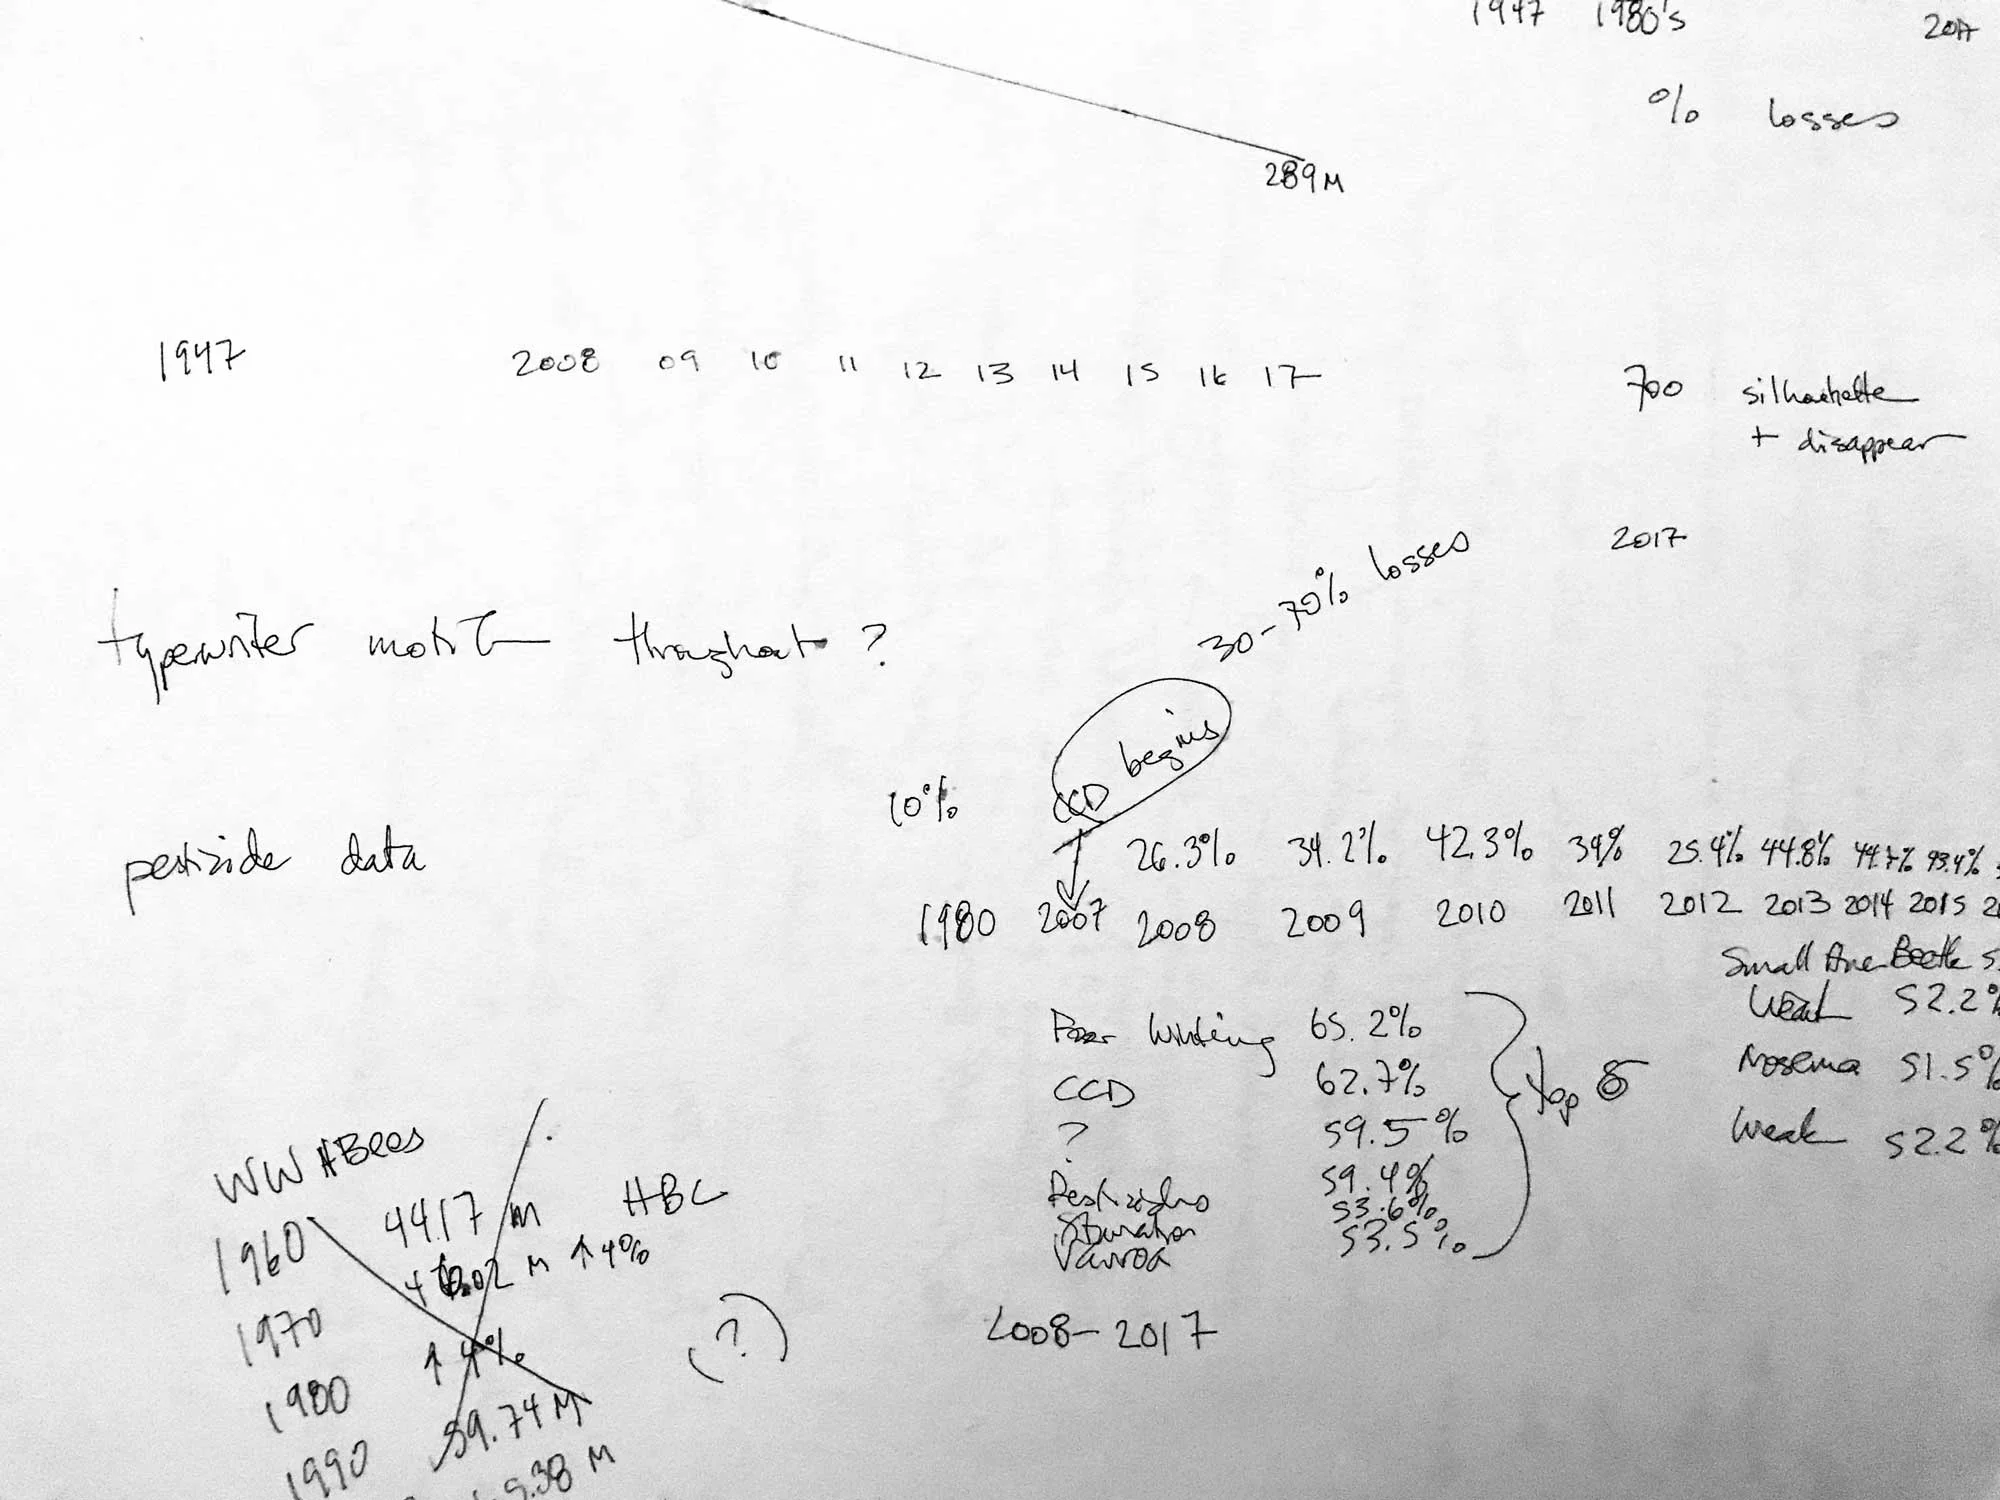 1947 1980's 2017
% losses
289M
1947 2008 09 10 11 12 13 14 15 16 17
700 silhouette
+ disappear
2017
30-70% losses
typewriter motif throughout ?
CCD begins
10%
pesticide data
26.3% 34.2% 42.3% 39% 25.4% 44.8% 44.7% 43.4%
1980 2007 2008 2009 2010 2011 2012 2013 2014 2015
Small Beetle
Weak 52.2%
Nosema 51.5%
Weak 52.2%
Poor 65.2%
CCD 62.7%
? 59.5%
Pesticides 59.4%
Starvation 53.6%
Varroa 53.5%
top 6
2008-2017
WW HBees
1960 44.17 m HBC
1970 M ↑ 4%
1980 ↑ 4%
1990 59.74 M
9.38 M
(?)